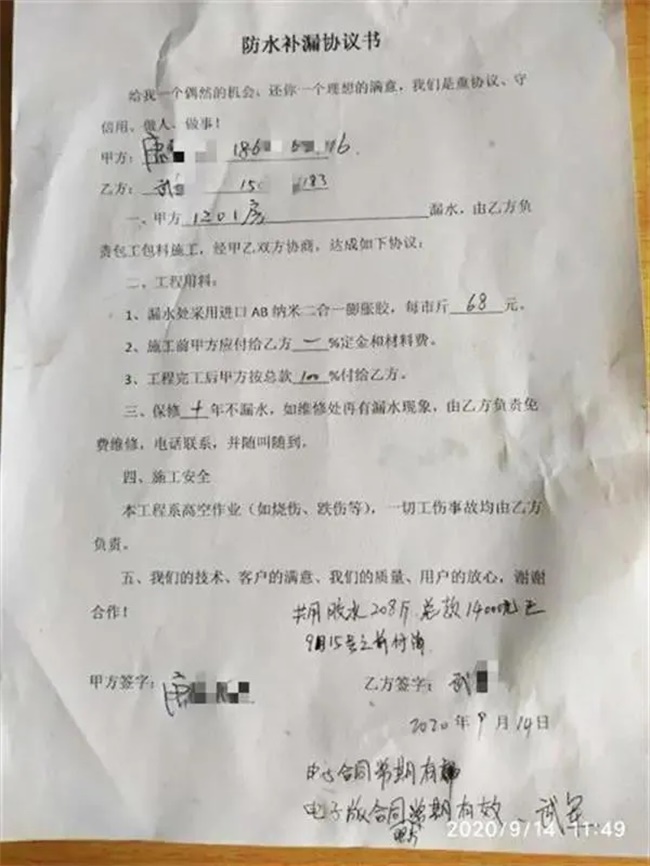 防水补漏协议书
给我一个偶然的机会，还你一个理想的满意，我们是重协议、守
信用、做人、做事！
甲方：唐 186 6.
乙方：武 15 183
一、甲方 1201房 漏水，由乙方负
责包工包料施工，经甲乙双方协商，达成如下协议：
二、工程用料：
1、漏水处采用进口 AB 纳米二合一膨胀胶，每市斤 68 元。
2、施工前甲方应付给乙方 一 %定金和材料费。
3、工程完工后甲方按总款 100 %付给乙方。
三、保修 十 年不漏水，如维修处再有漏水现象，由乙方负责免
费维修，电话联系，并随叫随到。
四、施工安全
本工程系高空作业（如烧伤、跌伤等），一切工伤事故均由乙方
负责。
五、我们的技术、客户的满意、我们的质量、用户的放心，谢谢
合作！
共用胶水208斤 总款14000元正
9月15号之前付清
甲方签字：唐
乙方签字：武
2020年9月14日
合同 期有
电子版合同 期有效
武军
2020/9/14 11:49